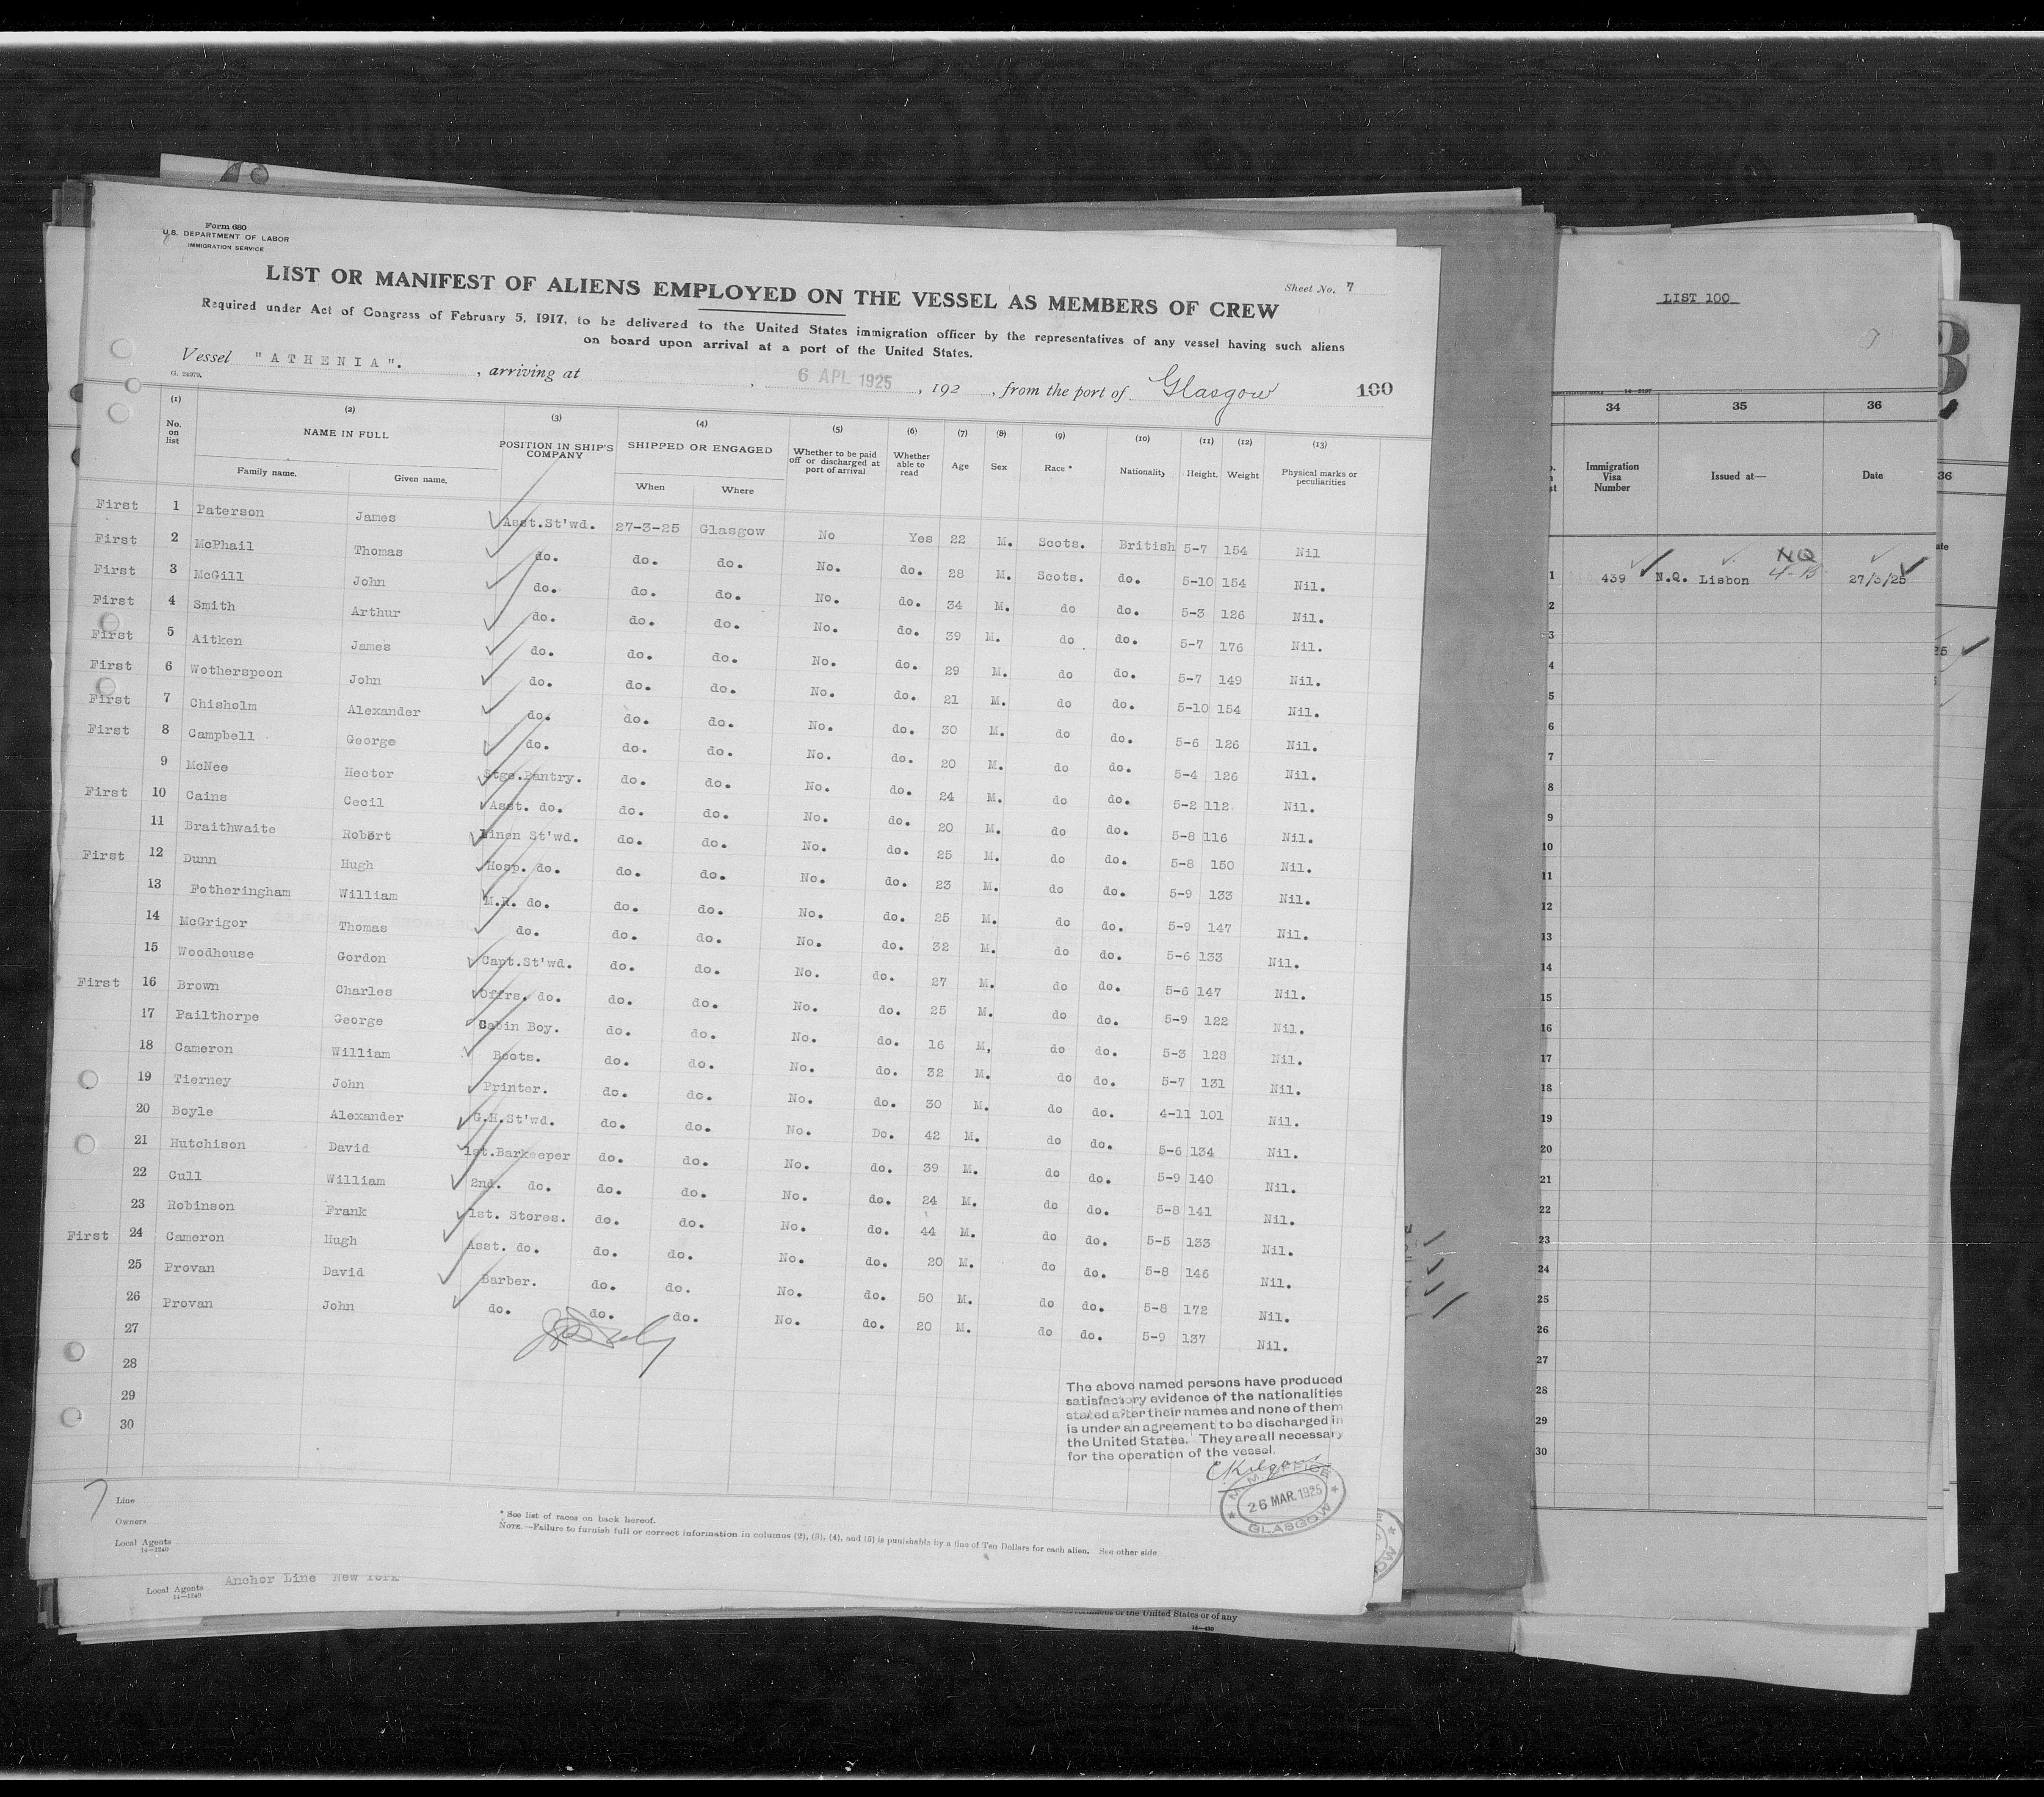 Form 680
U.S. DEPARTMENT OF LABOR
IMMIGRATION SERVICE
Sheet No. 7
LIST OR MANIFEST OF ALIENS EMPLOYED ON THE VESSEL AS MEMBERS OF CREW
Required under Act of Congress of February 5, 1917, to be delivered to the United States immigration officer by the representatives of any vessel having such aliens
on board upon arrival at a port of the United States.
Vessel "ATHENIA". , arriving at , 6 APL 1925 , 192 , from the port of Glasgow 100
G. 24979.
(1) (2) (3) (4) (5) (6) (7) (8) (9) (10) (11) (12) (13)
No. on list NAME IN FULL Family name. Given name. POSITION IN SHIP'S COMPANY SHIPPED OR ENGAGED When Where Whether to be paid off or discharged at port of arrival Whether able to read Age Sex Race * Nationality Height. Weight Physical marks or peculiarities
First 1 Paterson James Asst.St'wd. 27-3-25 Glasgow No Yes 22 M. Scots. British 5-7 154 Nil
First 2 McPhail Thomas do. do. do. No. do. 28 M. Scots. do. 5-10 154 Nil.
First 3 McGill John do. do. do. No. do. 34 M. do do. 5-3 126 Nil.
First 4 Smith Arthur do. do. do. No. do. 39 M. do do. 5-7 176 Nil.
First 5 Aitken James do. do. do. No. do. 29 M. do do. 5-7 149 Nil.
First 6 Wotherspoon John do. do. do. No. do. 21 M. do do. 5-10 154 Nil.
First 7 Chisholm Alexander do. do. do. No. do. 30 M. do do. 5-6 126 Nil.
First 8 Campbell George do. do. do. No. do. 20 M. do do. 5-4 126 Nil.
9 McNee Hector Stge.Pantry. do. do. No. do. 24 M. do do. 5-2 112 Nil.
First 10 Cains Cecil Asst. do. do. do. No. do. 20 M. do do. 5-8 116 Nil.
11 Braithwaite Robert Linen St'wd. do. do. No. do. 25 M. do do. 5-8 150 Nil.
First 12 Dunn Hugh Hosp. do. do. do. No. do. 23 M. do do. 5-9 133 Nil.
13 Fotheringham William M.R. do. do. do. No. do. 25 M. do do. 5-9 147 Nil.
14 McGrigor Thomas do. do. do. No. do. 32 M. do do. 5-6 133 Nil.
15 Woodhouse Gordon Capt.St'wd. do. do. No. do. 27 M. do do. 5-6 147 Nil.
First 16 Brown Charles Offrs. do. do. do. No. do. 25 M. do do. 5-9 122 Nil.
17 Pailthorpe George Cabin Boy. do. do. No. do. 16 M, do do. 5-3 128 Nil.
18 Cameron William Boots. do. do. No. do. 32 M. do do. 5-7 131 Nil.
19 Tierney John Printer. do. do. No. do. 30 M. do do. 4-11 101 Nil.
20 Boyle Alexander G.H.St'wd. do. do. No. Do. 42 M. do do. 5-6 134 Nil.
21 Hutchison David 1st.Barkeeper do. do. No. do. 39 M. do do. 5-9 140 Nil.
22 Cull William 2nd. do. do. do. No. do. 24 M. do do. 5-8 141 Nil.
23 Robinson Frank 1st. Stores. do. do. No. do. 44 M. do do. 5-5 133 Nil.
First 24 Cameron Hugh Asst. do. do. do. No. do. 20 M. do do. 5-8 146 Nil.
25 Provan David Barber. do. do. No. do. 50 M. do do. 5-8 172 Nil.
26 Provan John do. do. do. No. do. 20 M. do do. 5-9 137 Nil.
27
28
29
30
The above named persons have produced
satisfactory evidence of the nationalities
stated after their names and none of them
is under an agreement to be discharged in
the United States. They are all necessary
for the operation of the vessel.
M. M. OFFICE
26 MAR. 1925
GLASGOW
7
Line
Owners
Local Agents
14—1240
* See list of races on back hereof.
NOTE.—Failure to furnish full or correct information in columns (2), (3), (4), and (5) is punishable by a fine of Ten Dollars for each alien. See other side
Local Agents Anchor Line New York
14—1240
of the United States or of any
LIST 100
34 35 36
Immigration Visa Number Issued at— Date
NQ
1 439 N.Q. Lisbon 27/3/25
2
3
4
5
6
7
8
9
10
11
12
13
14
15
16
17
18
19
20
21
22
23
24
25
26
27
28
29
30
36